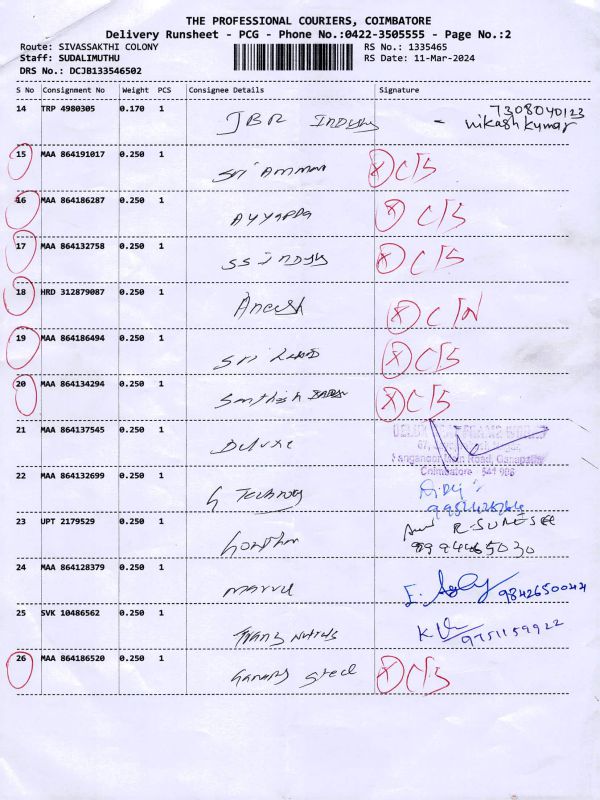 THE PROFESSIONAL COURIERS, COIMBATORE
Delivery Runsheet - PCG - Phone No.:0422-3505555 - Page No.:2
Route: SIVASSAKTHI COLONY RS No.: 1335465
Staff: SUDALIMUTHU RS Date: 11-Mar-2024
DRS No.: DCJB133546502
S No Consignment No Weight PCS Consignee Details Signature
14 TRP 4980305 0.170 1 JBR - 7308040123
nikash kumar
15 MAA 864191017 0.250 1 Sri Amman X C/S
16 MAA 864186287 0.250 1 Ayyappa X C/S
17 MAA 864132758 0.250 1 SS X C/S
18 HRD 312879087 0.250 1 Aneesh X C/N
19 MAA 864186494 0.250 1 Sri X C/S
20 MAA 864134294 0.250 1 Santhosh X C/S
21 MAA 864137545 0.250 1 Deluxe
Coimbatore
22 MAA 864132699 0.250 1 G
23 UPT 2179529 0.250 1 R. SURESH
9994465030
24 MAA 864128379 0.250 1 9842650044
25 SVK 10486562 0.250 1 Trans 9751159922
26 MAA 864186520 0.250 1 Steel X C/S